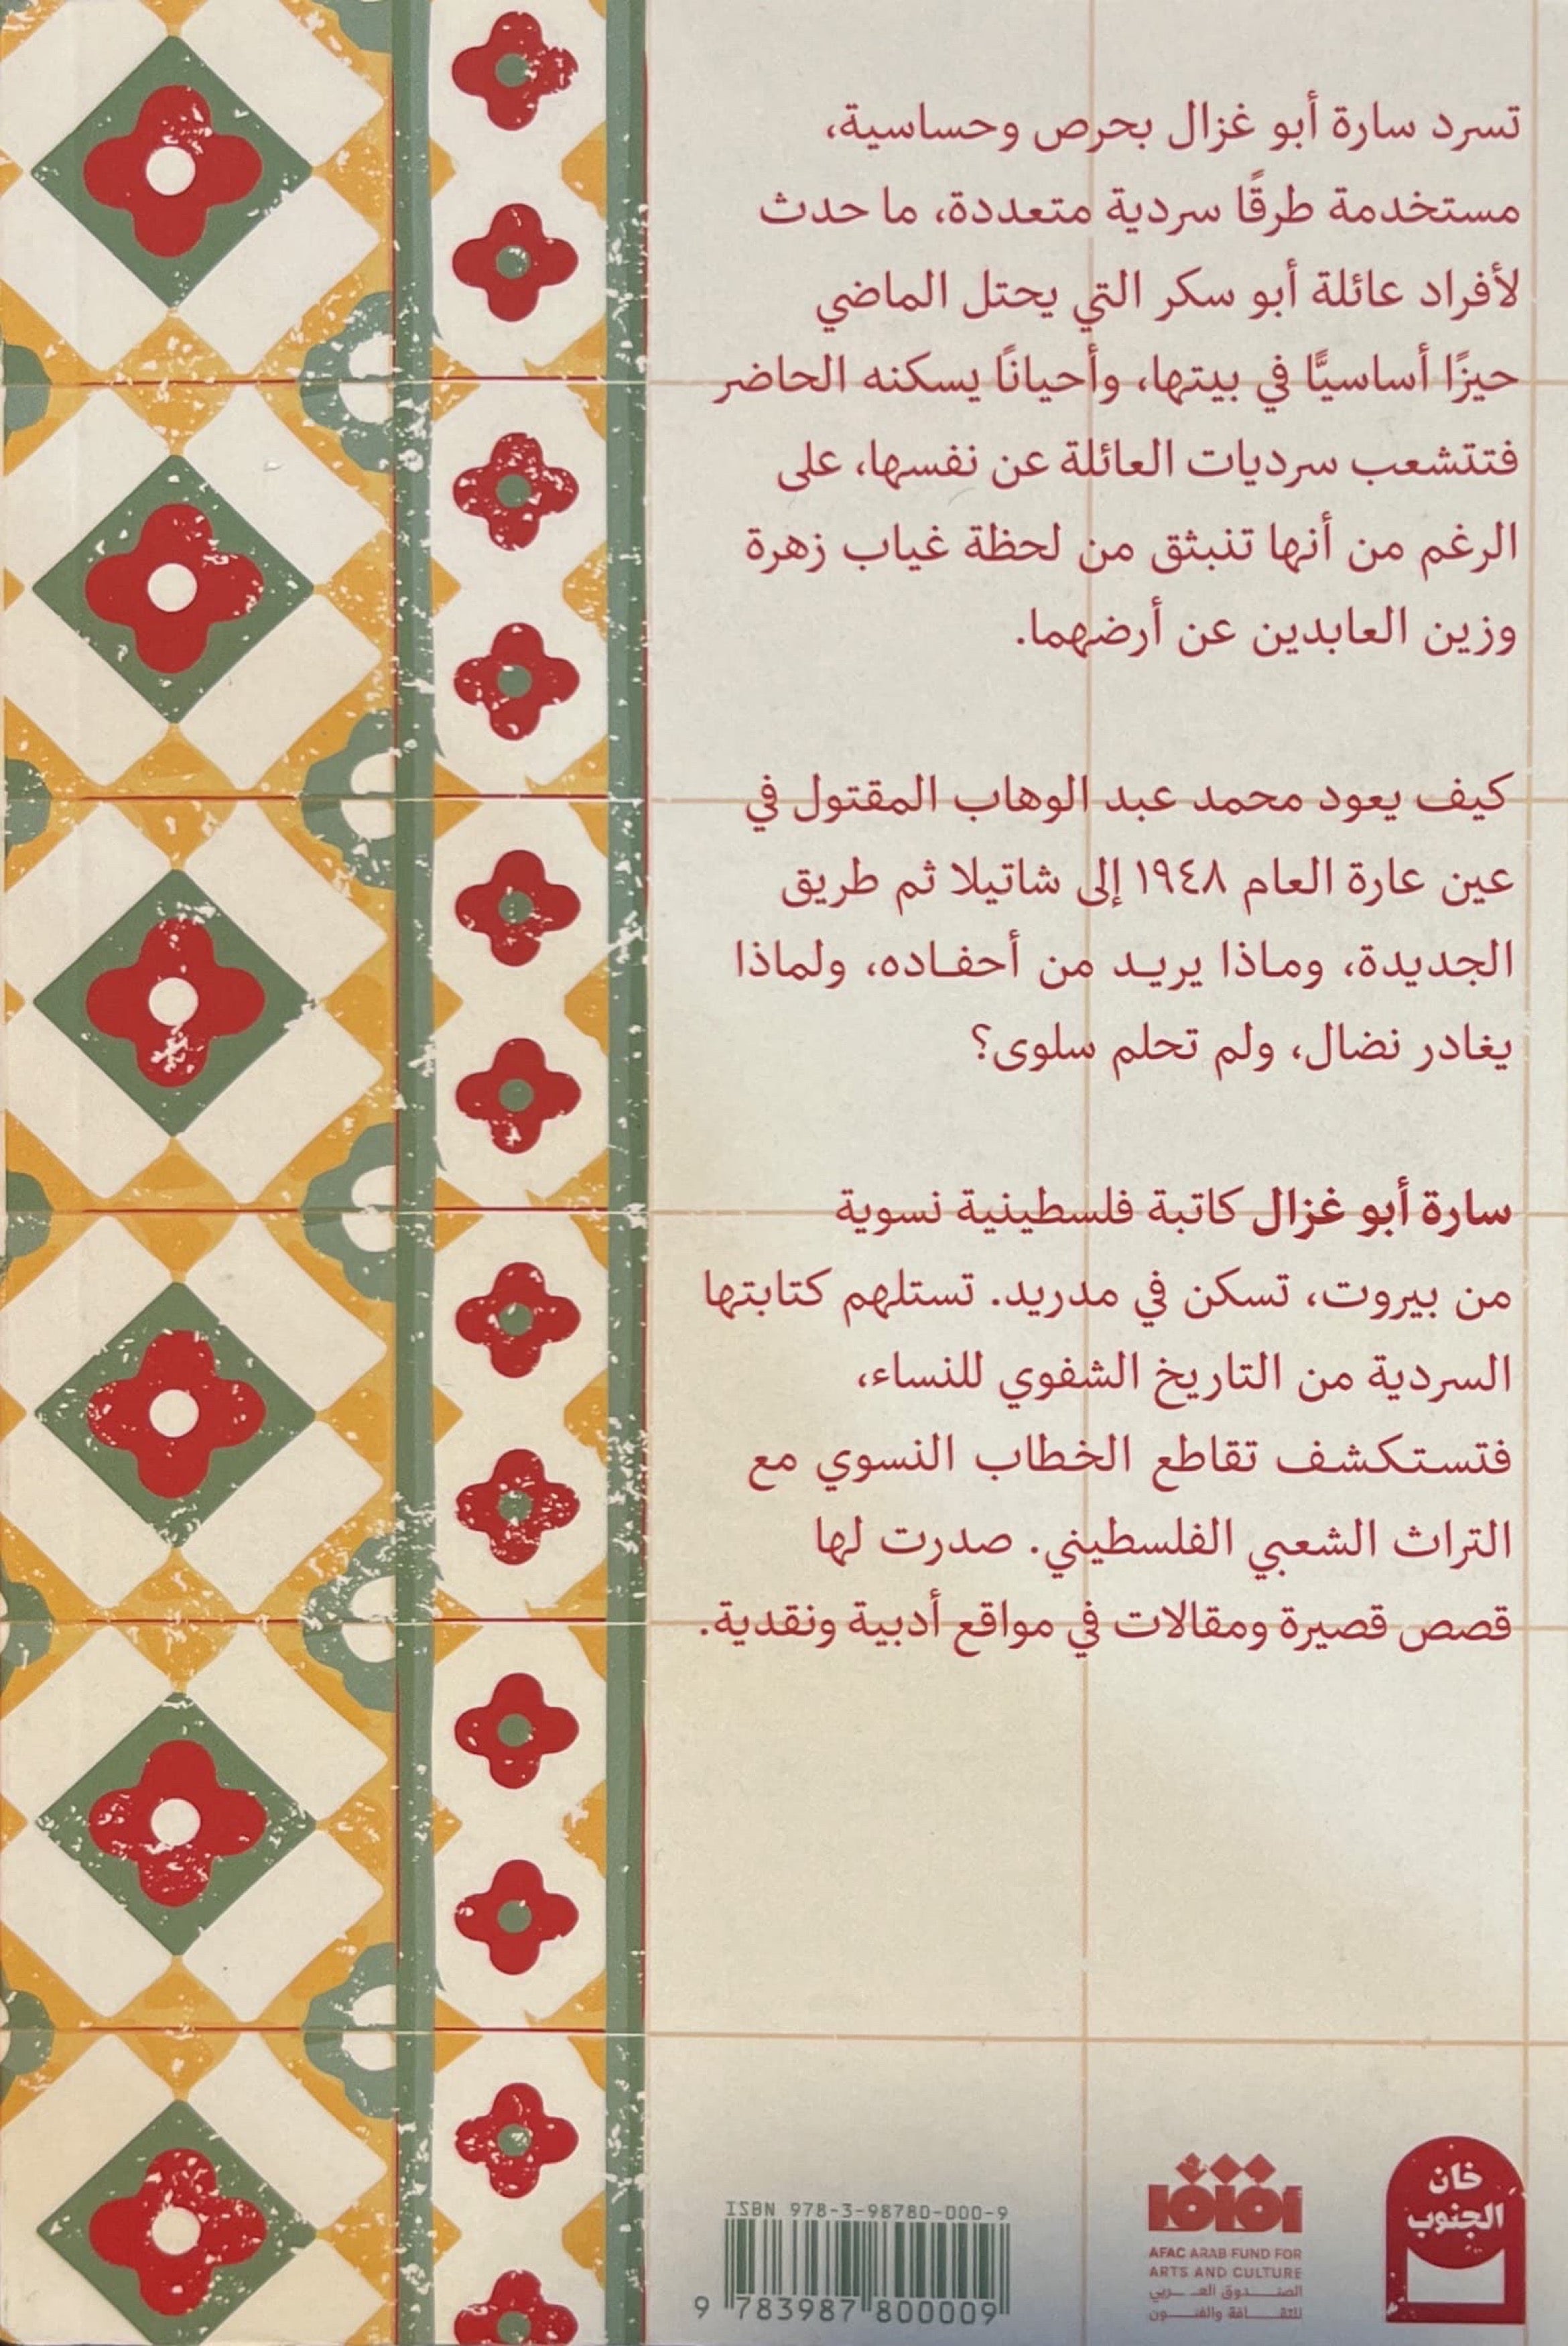 تسرد سارة أبو غزال بحرص وحساسية،
مستخدمة طرقًا سردية متعددة، ما حدث
لأفراد عائلة أبو سكر التي يحتل الماضي
حيزًا أساسيًّا في بيتها، وأحيانًا يسكنه الحاضر
فتتشعب سرديات العائلة عن نفسها، على
الرغم من أنها تنبثق من لحظة غياب زهرة
وزين العابدين عن أرضهما.
كيف يعود محمد عبد الوهاب المقتول في
عين عارة العام ١٩٤٨ إلى شاتيلا ثم طريق
الجديدة، وماذا يريد من أحفاده، ولماذا
يغادر نضال، ولم تحلم سلوى؟
سارة أبو غزال كاتبة فلسطينية نسوية
من بيروت، تسكن في مدريد. تستلهم كتابتها
السردية من التاريخ الشفوي للنساء،
فتستكشف تقاطع الخطاب النسوي مع
التراث الشعبي الفلسطيني. صدرت لها
قصص قصيرة ومقالات في مواقع أدبية ونقدية.
خان
الجنوب
آفاق
AFAC ARAB FUND FOR
ARTS AND CULTURE
الصنـــدوق العـــربي
للثقـــافة والفنـــون
ISBN 978-3-98780-000-9
9 783987 800009